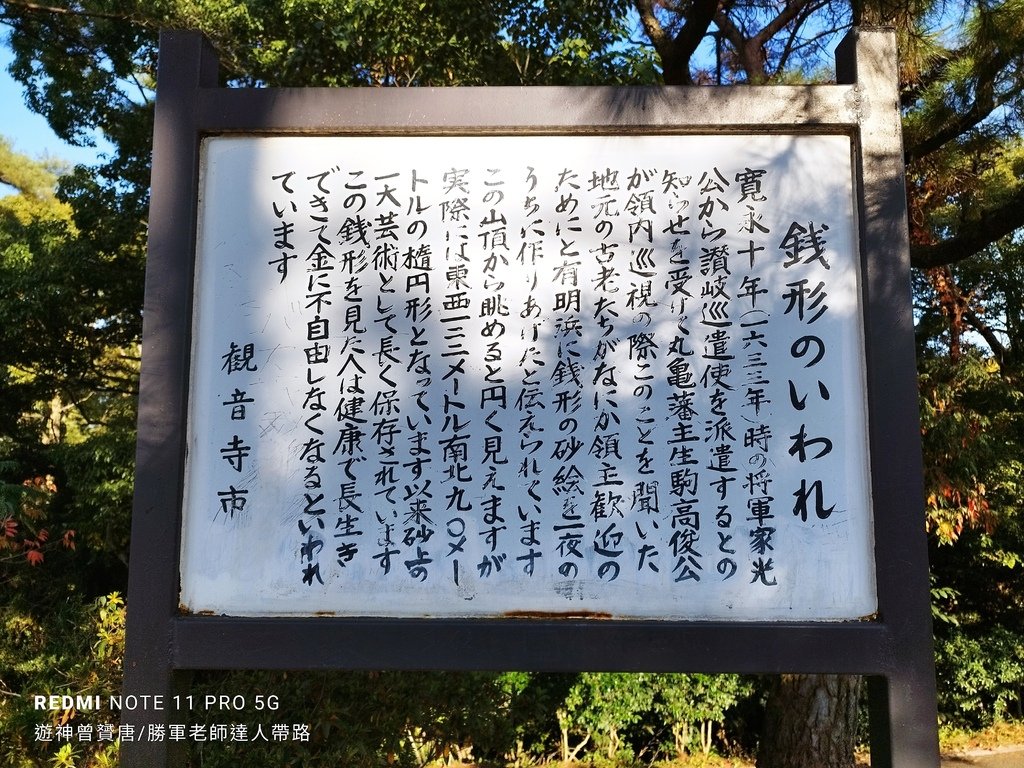 銭形のいわれ
寛永十年(一六三三年)時の将軍家光
公から讃岐巡遣使を派遣するとの
知らせを受けて丸亀藩主生駒高俊公
が領内巡視の際このことを聞いた
地元の古老たちがなにか領主歓迎の
ためにと有明浜に銭形の砂絵を一夜の
うちに作りあげたと伝えられています
この山頂から眺めると円く見えますが
実際には東西一二二メートル南北九〇メー
トルの楕円形となっています以来砂上の
一大芸術として長く保存されています
この銭形を見た人は健康で長生き
できて金に不自由しなくなるといわれ
ています
観音寺市
REDMI NOTE 11 PRO 5G
遊神曾寶唐/勝軍老師達人帶路